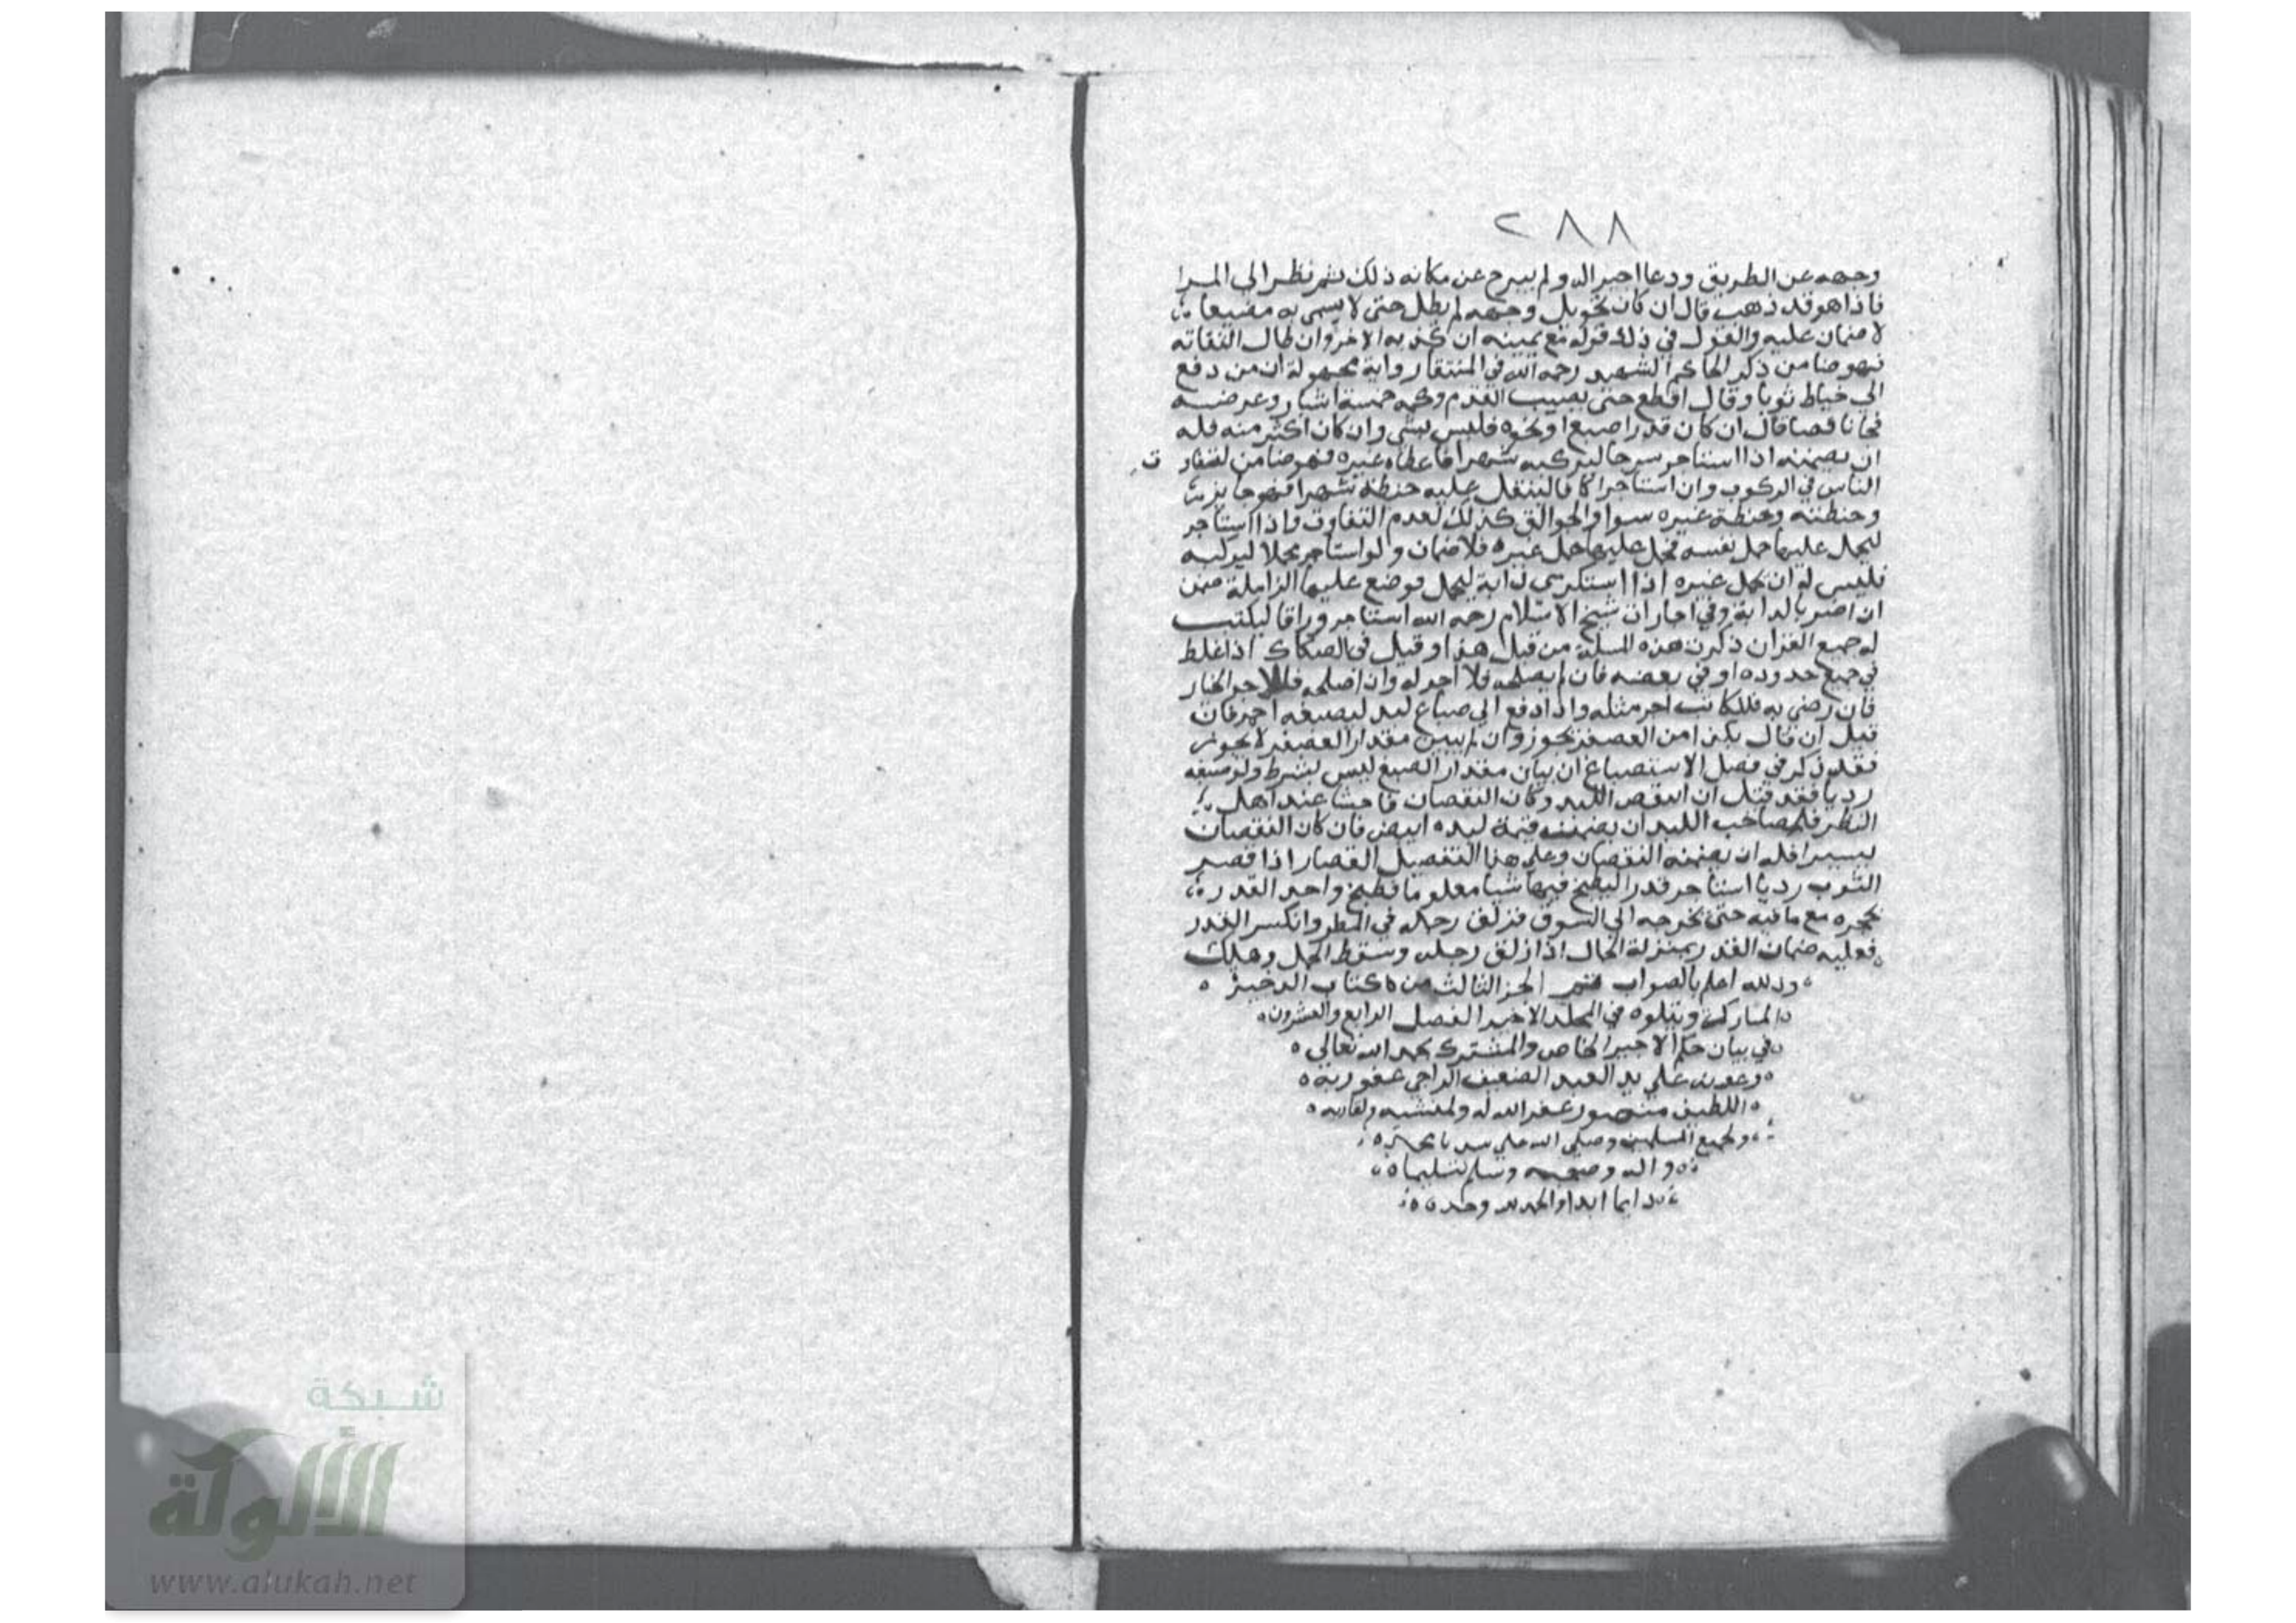 ٢٨٨
وجهه عن الطريق ودعا اجيرا له ولم يبرح عن مكانه ذلك ثم نظر الي المرا
فاذا هو قد ذهب قال ان كان تحويل وجهه لم يطل حتى لا يسمى به مضيعا
لا ضمان عليه والقول في ذلك قوله مع يمينه ان كذبه الاخر وان طال التفاته
فهو ضامن ذكر الحاكم الشهيد رحمه الله في المنتقا رواية مجهولة ان من دفع
الي خياط ثوبا وقال اقطع حتى يصيب القدم وكمه خمسة اشبار وعرضه
فجا ناقصا قال ان كان قدر اصبع او نحوه فليس بشي وان كان اكثر منه فله
ان يضمنه اذا استاجر سرجا ليركبه شهرا فاعطاه غيره فهو ضامن لتفاوت
الناس في الركوب وان استاجر اكافا لينقل عليه حنطة شهرا فهو جايز
وحنطته وحنطة غيره سوا والجوالق كذلك لعدم التفاوت واذا استاجر
ليحمل عليها حمل نفسه فحمل عليها حمل غيره فلا ضمان ولو استاجر محملا ليركبه
فليس له ان يحمل غيره اذا استكرى دابة ليحمل فوضع عليها الزاملة ضمن
ان اضر بالدابة وفي اجارات شيخ الاسلام رحمه الله استاجر وراقا ليكتب
له جميع القران ذكرت هذه المسلة من قبل هذا وقيل في الصكاك اذا غلط
في جميع حدوده او في بعضه فان لم يصلحه فلا اجر له وان اصلحه فللاجر الخيار
فان رضي به فللكاتب اجر مثله واذا دفع الي صباغ لبد ليصبغه احمر فان
قيل ان قال بكذا من العصفر يجوز وان لم يبين مقدار العصفر لا يجوز
فقد ذكر في فصل الاستصباغ ان بيان مقدار الصبغ ليس بشرط ولو صبغه
رديا فقد قيل ان انتقص اللبد وكان النقصان فاحشا عند اهل
النظر فلصاحب اللبد ان يضمنه قيمة لبده ابيض فان كان النقصان
يسيرا فله ان يضمنه النقصان وعلي هذا التفصيل القصار اذا قصر
الثوب رديا استاجر قدرا ليطبخ فيها شيا معلوما فطبخ واخذ القدر
بحجره مع ما فيه حتى يخرجه الي السوق فزلق رجله في المطر وانكسر القدر
فعليه ضمان القدر بمنزلة الحمال اذا زلق رجله وسقط الحمل وهلك
والله اعلم بالصواب الجز الثالث من كتاب الدخيرة
المبارك ويتلوه في المجلد الاخير الفصل الرابع والعشرون
في بيان حكم الاجير الخاص والمشترك بحمد الله تعالي
وعونه علي يد العبد الضعيف الراجي عفو ربه
اللطيف منصور غفر الله له ولمنشيه ولقاريه
ولجميع المسلمين وصلي الله علي سيدنا محمد
واله وصحبه وسلم تسليما
دايما ابدا والحمد لله وحده
شبكة
الألوكة
www.alukah.net